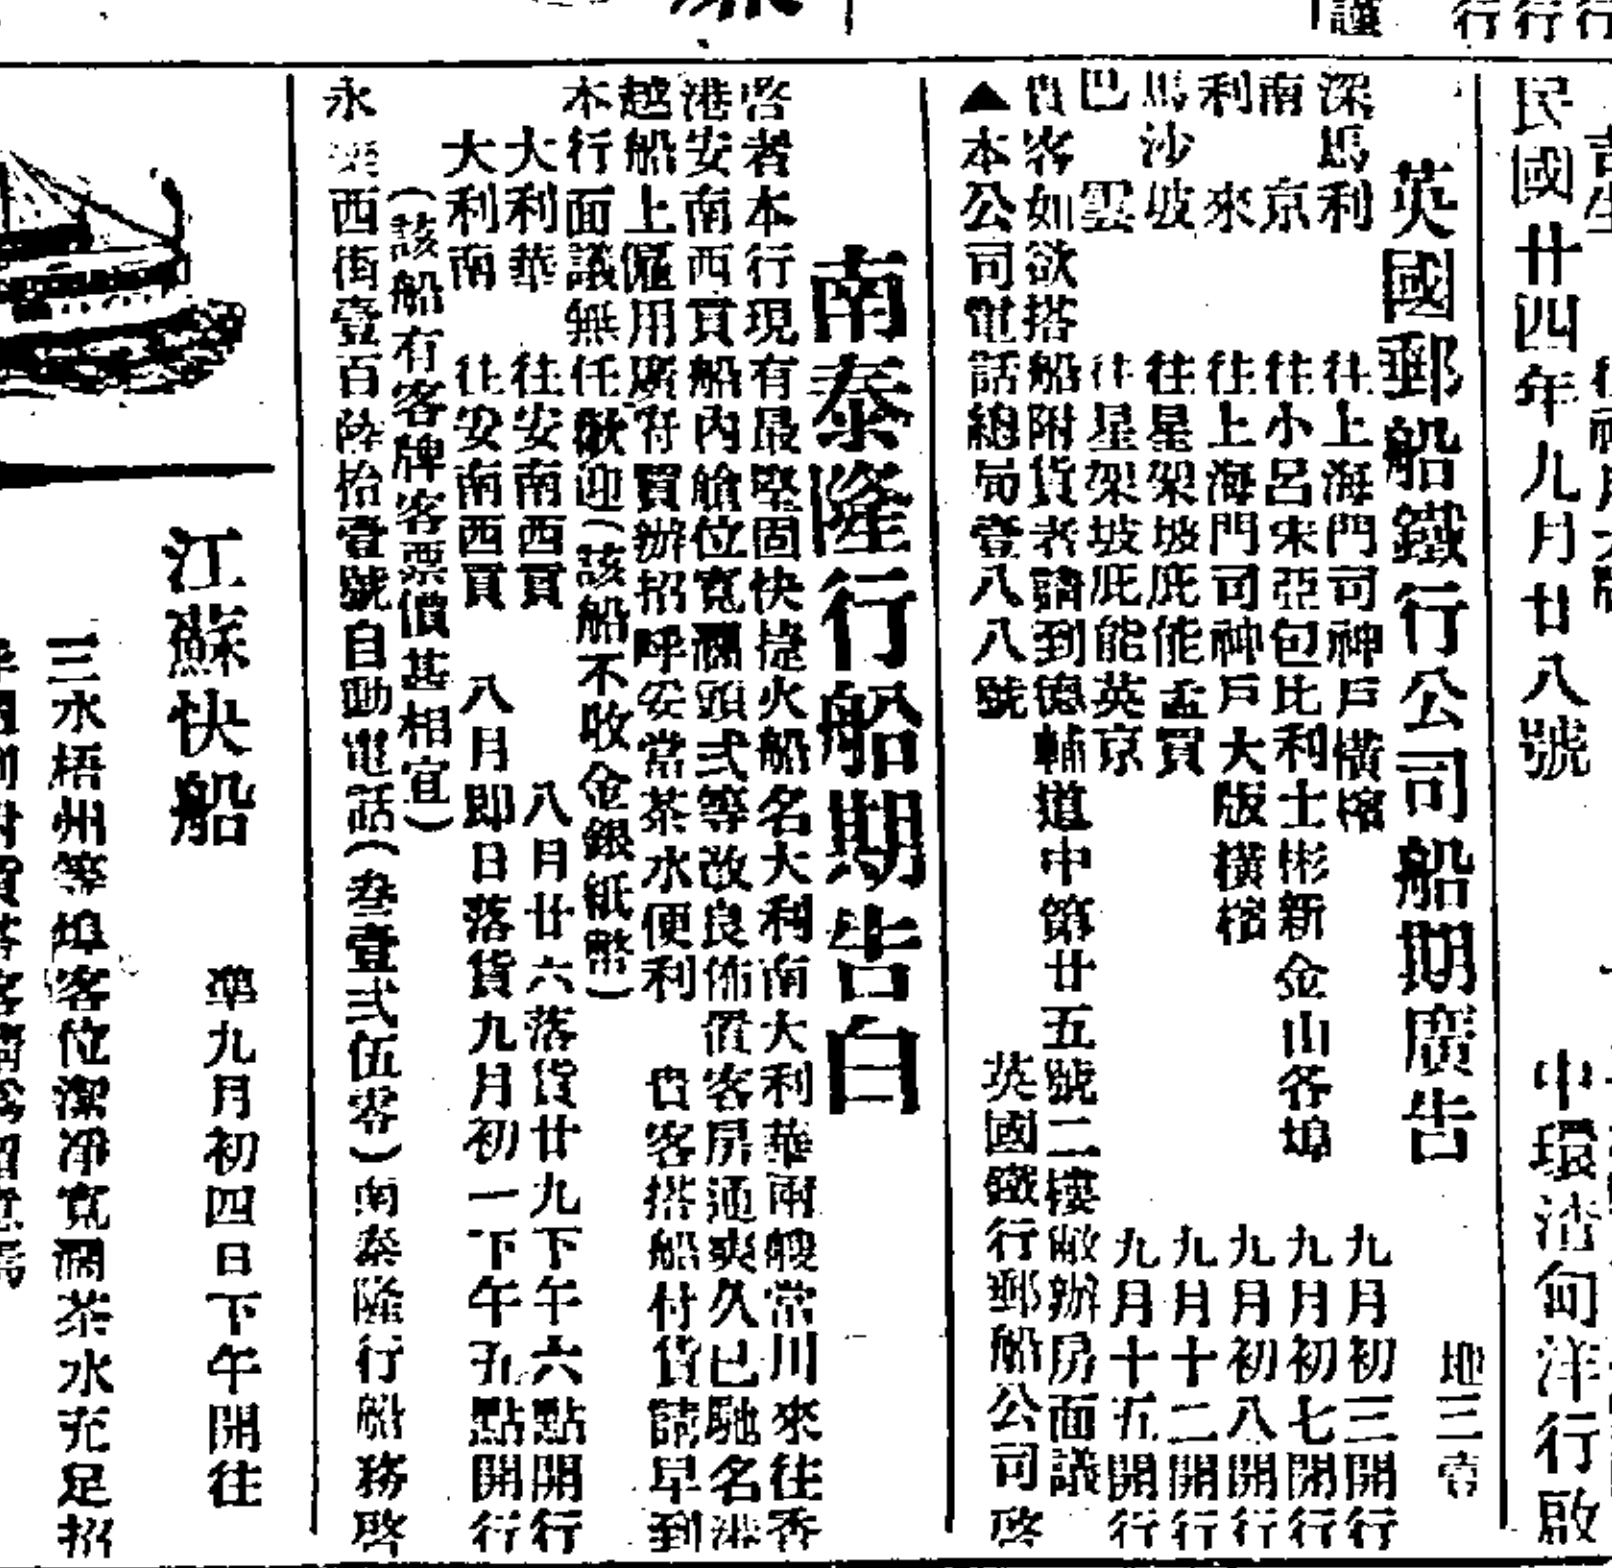 民國廿四年九月廿八號
中環渣甸洋行啟
英國郵船鐵行公司船期廣告
地三壹
深馬利 往上海門司神戶橫檳 九月初三開行
南京 往小呂宋亞包比利士彬新金山各埠 九月初七開行
利來 往上海門司神戶大版橫檳 九月初八開行
馬沙坡 往星架坡庇能孟買 九月十二開行
巴雲 往星架坡庇能英京 九月十五開行
貴客如欲搭船附貨者請到德輔道中第廿五號二樓敝辦房面議
▲本公司電話總局壹八八號 英國鐵行郵船公司啓
南泰隆行船期告白
啓者本行現有最堅固快捷火船名大利南大利華兩艘常川來往香
港安南西貢船內艙位寬濶頭弍等改良佈置客房通爽久已馳名港
越船上僱用廣府買辦招呼妥當茶水便利 貴客搭船付貨請早到
本行面議無任歡迎(該船不收金銀紙幣)
大利華 往安南西貢 八月廿六落貨廿九下午六點開行
大利南 往安南西貢 八月即日落貨九月初一下午五點開行
(該船有客牌客票價甚相宜)
永樂西街壹百陸拾壹號自動電話(叁壹弍伍零)南泰隆行船務啓
江蘇快船
準九月初四日下午開往
三水梧州等埠客位潔淨寬濶茶水充足招